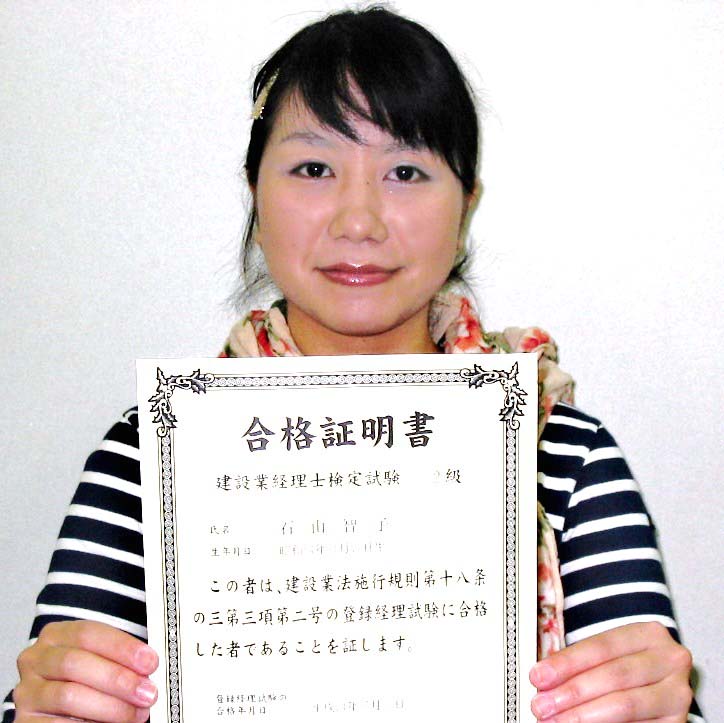 合格証明書
建設業経理士検定試験 2級
氏名 石山智子
生年月日
この者は、建設業法施行規則第十八条
の三第三項第二号の登録経理試験に合格
した者であることを証します。
登録経理試験の
合格年月日